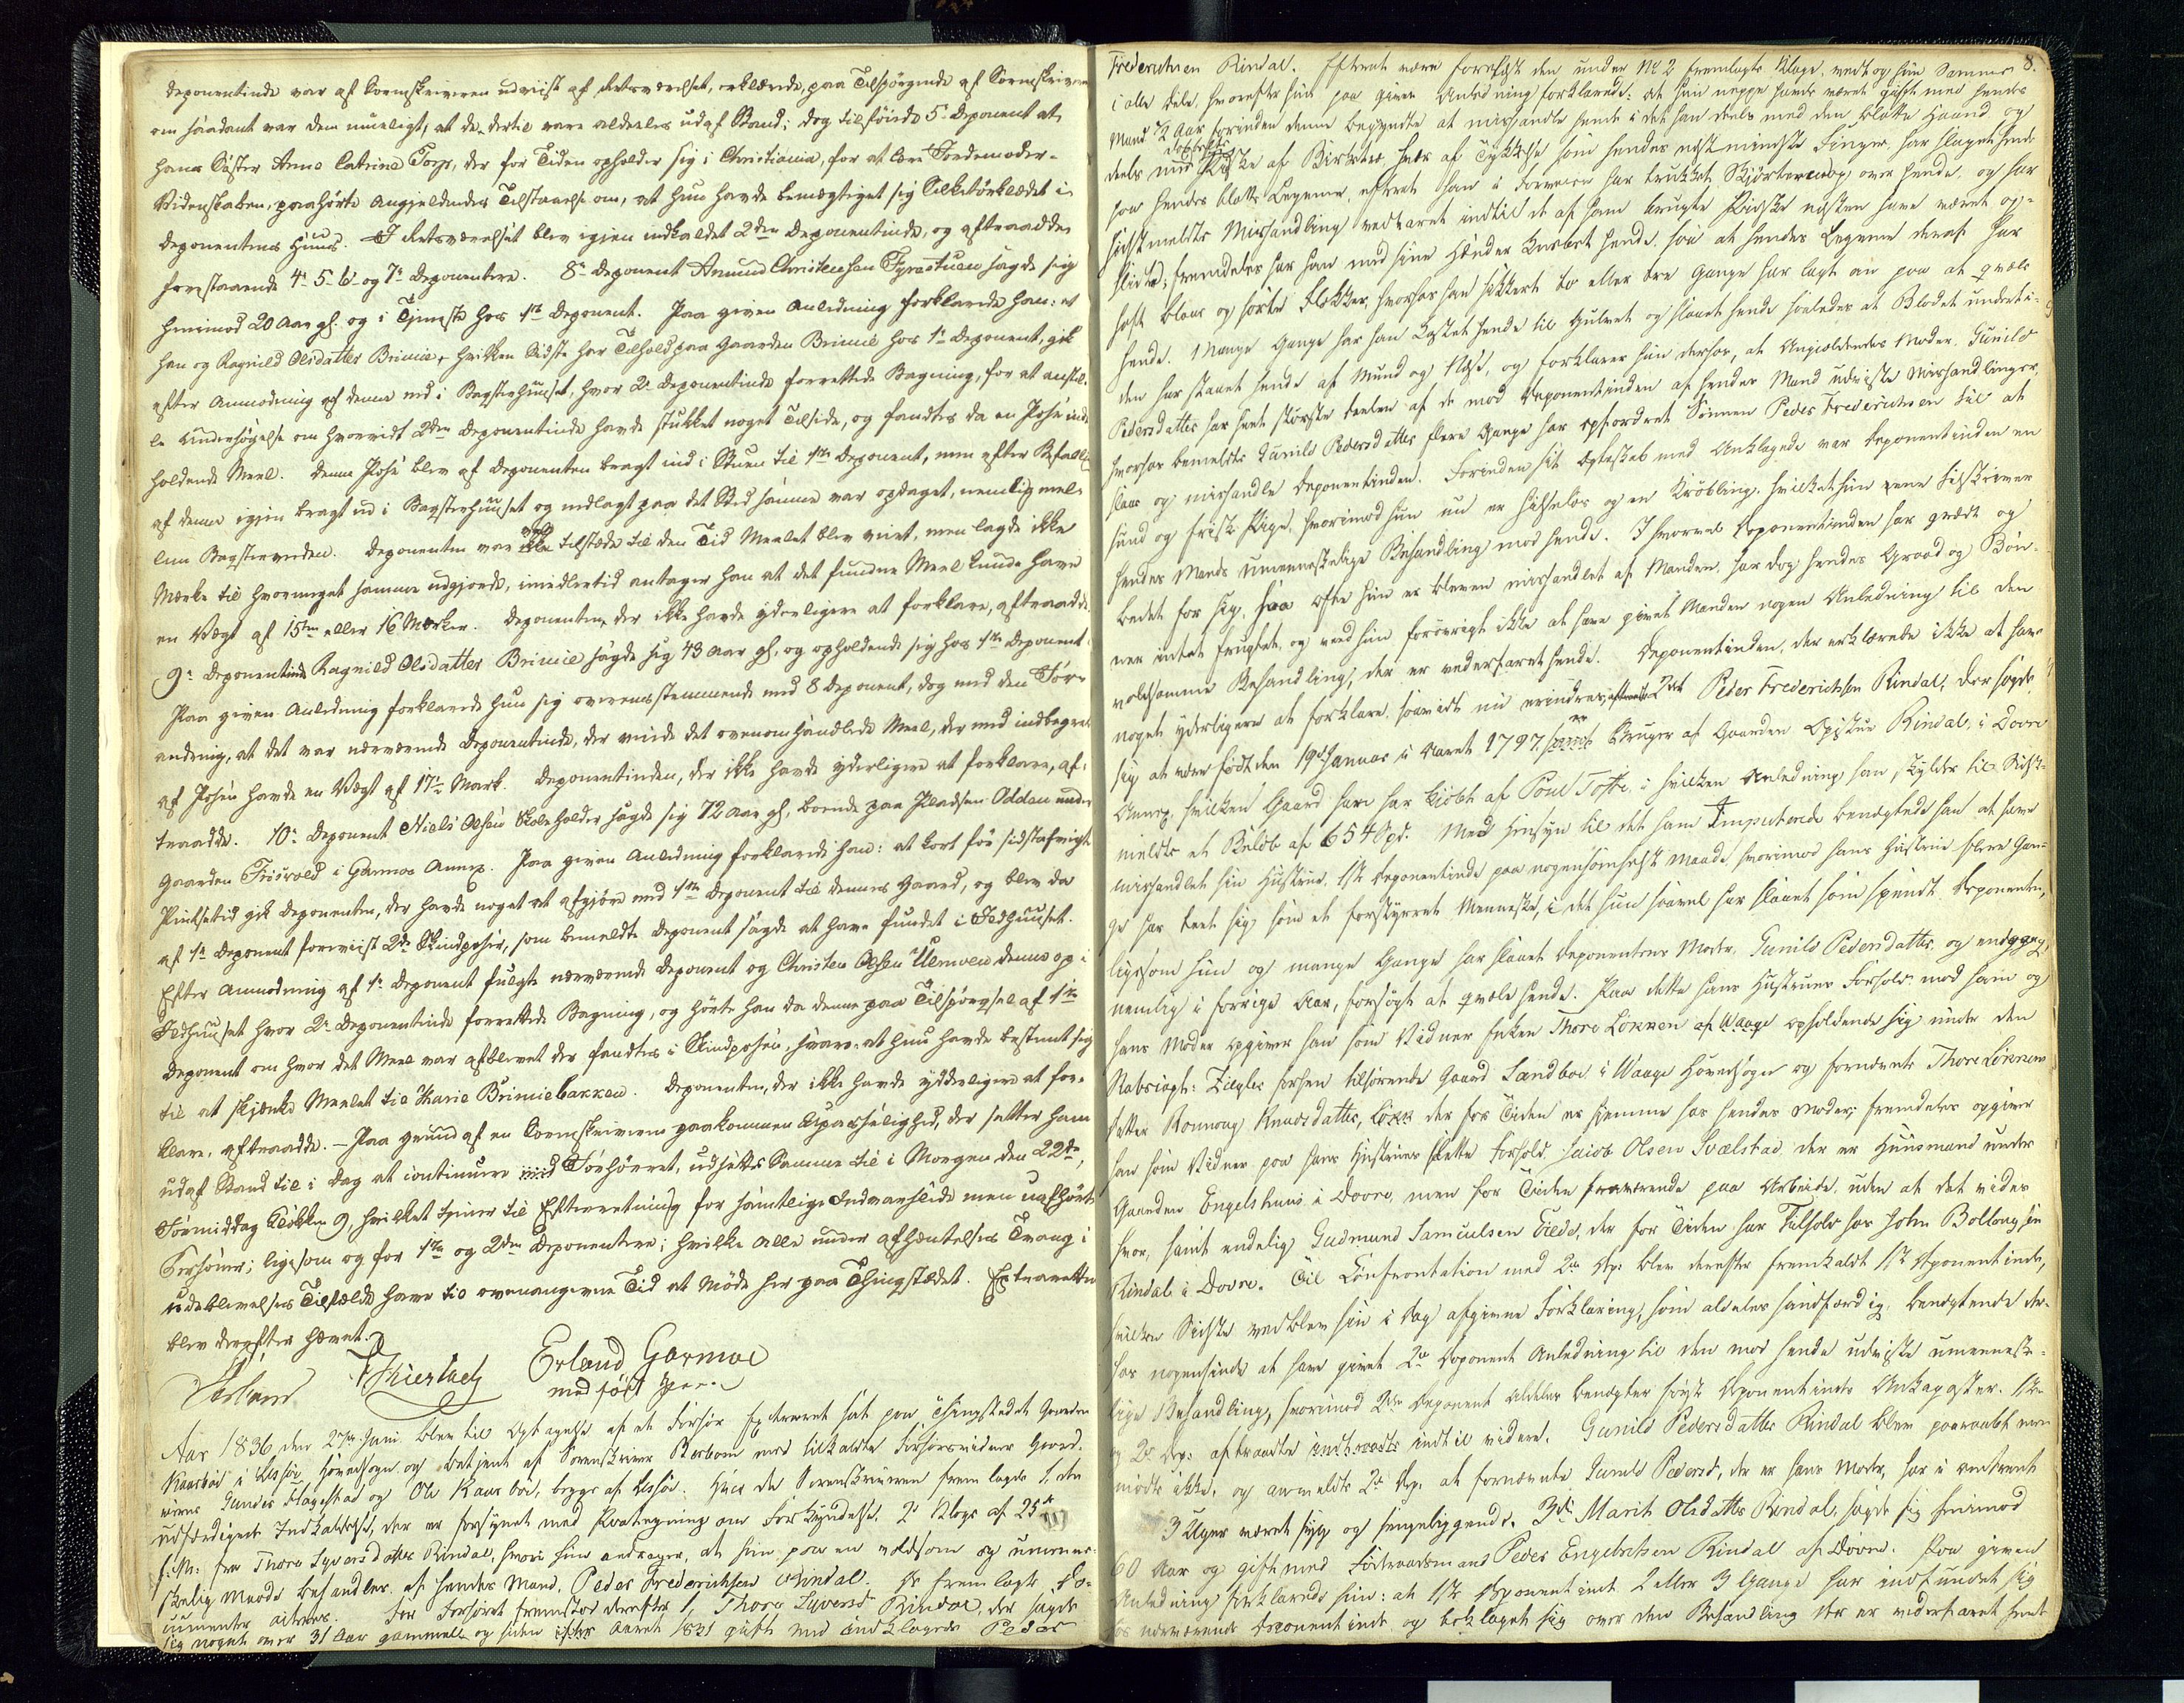 deponentinde var af Sorenskriveren udviist af Retsværelset, erklærede, paa Tilspørgende af Sorenskriveren
om saadant var dem mueligt, at de dertil vare aldeles ud af Stand; dog tilføiede 5te Deponent at
hans Søster Anne Catrine Torp, der for Tiden opholder sig i Christiania, for at lære Jordemoder-
Videnskaben, paahørte Angjeldendes Tilstaaelse om, at hun havde bemægtiget sig Silketørklædet i
Deponentens Huus. I Retsværelset blev igjen indkaldet 2den Deponentinde, og aftraadde
forestaaende 4de 5te 6te og 7de Deponentere. 8de Deponent Amund Christensen Fyrastuen sagde sig
henimod 20 Aar gl. og i Tjeneste hos 1ste Deponent. Paa given Anledning forklarede han: at
han og Ragnild Olsdatter Brimie, hvilken Sidste har Tilhold paa Gaarden Brimie hos 1ste Deponent, gik
efter Anmodning af denne ned i Bagsterhuuset, hvor 2den Deponentinde forrettede Bagning, for at anstil-
le Undersøgelse om hvorvidt 2den Deponentinde havde stukket noget Tilside, og fandtes da en Pose inde
holdende Meel. Denne Pose blev af Deponenten bragt ind i Stuen til 1ste Deponent, men efter Befaling
af denne igjen bragt ud i Bagsterhuuset og nedlagt paa det Sted samme var opdaget, nemlig mel-
lem Bagsterveden. Deponenten var vel tilstæde til den Tid Meelet blev veiet, men lagde ikke
Mærke til hvormeget samme udgjorde, imidlertid antager han at det fundne Meel kunde have
en Vægt af 15ten eller 16 Mærker. Deponenten, der ikke havde yderligere at forklare, aftraadde.
9de Deponentinde Ragnild Olsdatter Brimie sagde sig 43 Aar gl. og opholdende sig hos 1ste Deponent.
Paa given Anledning forklarede hun sig overeensstemmende med 8 Deponent, dog med den For-
andring, at det var nærværende Deponentinde, der veiede det ovenomhandlede Meel, der med indbegreb
af Posen havde en Vægt af 17 Mark. Deponentinden, der ikke havde yderligere at forklare, af-
traadde. 10de Deponent Niels Olsen Skoleholder sagde sig 72 Aar gl., boende paa Pladsen Odden under
Gaarden Friisvold i Garmos Annex. Paa given Anledning forklarede han: at kort før sidstafvigte
Pintsetid gik Deponenten, der havde noget at afgjøre med 1ste Deponent til dennes Gaard, og blev da
af 1ste Deponent foreviist 2de Skindposer, som bemeldte Deponent sagde at have fundet i Ildhuuset.
Efter Anmodning af 1ste Deponent fulgte nærværende Deponent og Christen Olsen Ulemoen denne op i
Ildhuuset hvor 2den Deponentinde forrettede Bagning, og hørte han da denne paa Tilspørgsel af 1ste
Deponent om hvor det Meel var afblevet der fandtes i Skindposen, svare: at hun havde bestemt sig
til at skjenke Meelet til Marie Brimiebakken. Deponenten, der ikke havde ydderligere at for-
klare, aftraadde. – Paa Grund af en Sorenskriveren paakommen Upasselighed, der sætter ham
ud af Stand til i Dag at continuere med Forhøret, udsættes Samme til i Morgen den 22de,
Formiddag Klokken 9, hvilket tjener til Efterretning for samtlige Indvarslede men uafhørte
Personer; ligesom og for 1ste og 2den Deponentere; hvilke Alle under Afhentelses Tvang i
Udeblivelses Tilfælde have til ovenangivne Tid at Møde her paa Thingstædet. Extraretten
blev derefter hævet.
Erland Garmoe
med ført Pen
Aar 1836, den 27de Juni blev til Optagelse af et Forhør Extraret sat paa Thingstedet Gaarden
Kaarbøe i Lessøe Hovedsogn og betjent af Sorenskriver Borbom med tilkaldte Forhørsvidner Gaard-
eierne Gunder Flagestad og Ole Kaarbøe, begge af Lessøe. Hvor da Sorenskriveren fremlagde 1. den
udfærdigede Indkaldelse, der er forsynet med Paategning om Forkyndelse. 2. Klage af 25de
f. M. fra Thore Syversdatter Rindal, hvori hun andrager, at hun paa en voldsom og umenne-
skelig Maade behandles af hendes Mand, Peder Frederichsen Rindal. De fremlagte Do-
cumenter acteres. For Forhøret fremstod derefter 1, Thore Syversd. Rindal, der sagde
sig noget over 31 Aar gammel og siden Aaret 1831 gift med Anklagede Peder
8.
Frederichsen Rindal. Efterat være forelæst den under No 2 fremlagte Klage, vedtog hun Samme
i alle Dele, hvorefter hun paa given Anledning forklarede: at hun neppe havde været gift med hendes
Mand ½ Aar forinden denne begyndte at mishandle hende i det han deels med den blotte Haand og
deels med dobbelt Pidske af Birketræ, hver af Tykkelse som hendes næst mindste Finger, har slaget hende
paa hendes blotte Legeme, efterat han i Forveien har trukket Skjørterne op over hende, og har
sidstmeldte Mishandling vedvaret indtil de af ham brugte Pidske næsten have været op-
slidte; fremdeles har han med sine Hænder knebet hende saa at hendes Legeme deraf har
faaet blaae og sorte Flekker, hvorhos han sikkert to eller tre Gange har lagt an paa at qvæle
hende. Mange Gange har han kastet hende til Gulvet og slaaet hende saaledes at Blodet undert-
den har staaet hende af Mund og Næse, og forklarer hun derhos, at Angjeldendes Moder Gunild
Pedersdatter har seet største Deelen af de mod Deponentinden af hendes Mand udviste Mishandlinger,
hvorhos bemeldte Gunild Pedersdatter flere Gange har opfordret Sønnen Peder Frederichsen til at
slaae og mishandle Deponentinden. Forinden sit Ægteskab med Anklagede var Deponentinden en
sund og frisk Pige, hvorimod hun nu er helseløs og en Krøbling, hvilket hun ene tilskriver
hendes Mands umenneskelige Behandling mod hende. I hvorvel Deponentinden har grædt og
bedet for sig, saa ofte hun er bleven mishandlet af Manden, har dog hendes Graad og Bøn-
ner intet frugtet, og veed hun forøvrigt ikke at have givet Manden nogen Anledning til den
voldsomme Behandling, der er vederfaret hende. Deponentinden, der erklærede ikke at have
noget yderligere at forklare, saavidt nu erindres, aftraadte. 2det Peder Frederichsen Rindal, der sagde
sig at være født den 19de Januar i Aaret 1797, er Bruger af Gaarden Opistue Rindal, i Dovre
Annex, hvilken Gaard han har kjøbt af Poul Tofte, i hvilken Anledning han skylder til Sidst-
meldte et Beløb af 654 Spd. Med Hensyn til det ham Imputerede benægtede han at have
mishandlet sin Hustrue, 1ste Deponentinde paa nogensomhelst Maade, hvorimod hans Hustrue flere Gan-
ge har teet sig som et forstyrret Menneske, i det hun saavel har slaaet som spændt Deponenten,
ligesom hun og mange Gange har slaaet Deponentens Moder, Gunild Pedersdatter og endog,
nemlig i forrige Aar, forsøgt at qvæle hende. Paa dette hans Hustrues Forhold mod ham og
hans Moder opgiver han som Vidner Enken Thore Løkken af Waage opholdende sig under den
Ziegler forhen tilhørende Gaard Sandboe i Waage Hovedsogn og fornævnte Thore Løkkens
Datter Ronnoug Knudsdatter, Løkk der for Tiden er hjemme hos hendes Moder; fremdeles opgiver
han som Vidner paa hans Hustrues slette Forhold Jacob Olsen Svælstad der er Huusmand under
Gaarden Engelshuus i Dovre, men for Tiden fraværende paa Arbeide, uden at det vides
hvor, samt endelig Gudmund Samuelsen Eilde, der for Tiden har Tilhold hos John Bollongsen
Rindal i Dovre. Til Confrontation med 2de Dep. blev derefter fremkaldt 1ste Deponentinde,
hvilken Sidste vedblev sin i Dag afgivne Forklaring, som aldeles sandfærdig, benægtende der-
hos nogensinde at have givet 2de Deponent Anledning til den mod hende udviste umenneske-
lige Behandling, hvorimod 2den Deponent aldeles benægter første Deponentinde Ankeposter. 1ste
og 2de Dep. aftraadte indtil videre. Gunild Pedersdatter Rindal blev paaraabt men
mødte ikke, og anmeldte 2de Dep. at fornævnte Gunild Pedersd., der er hans Moder, har i omtrent
3 Uger været syg og sengeliggende. 3die Marit Olsdatter Rindal, sagde sig henimod
60 Aar og gift med Føderaadsmand Peder Engebretsen Rindal af Dovre. Paa given
Anledning forklarede hun: at 1ste Deponentinde 2 eller 3 Gange har indfundet sig
hos nærværende Deponentinde og beklaget sig over den Behandling der er vederfaret hende